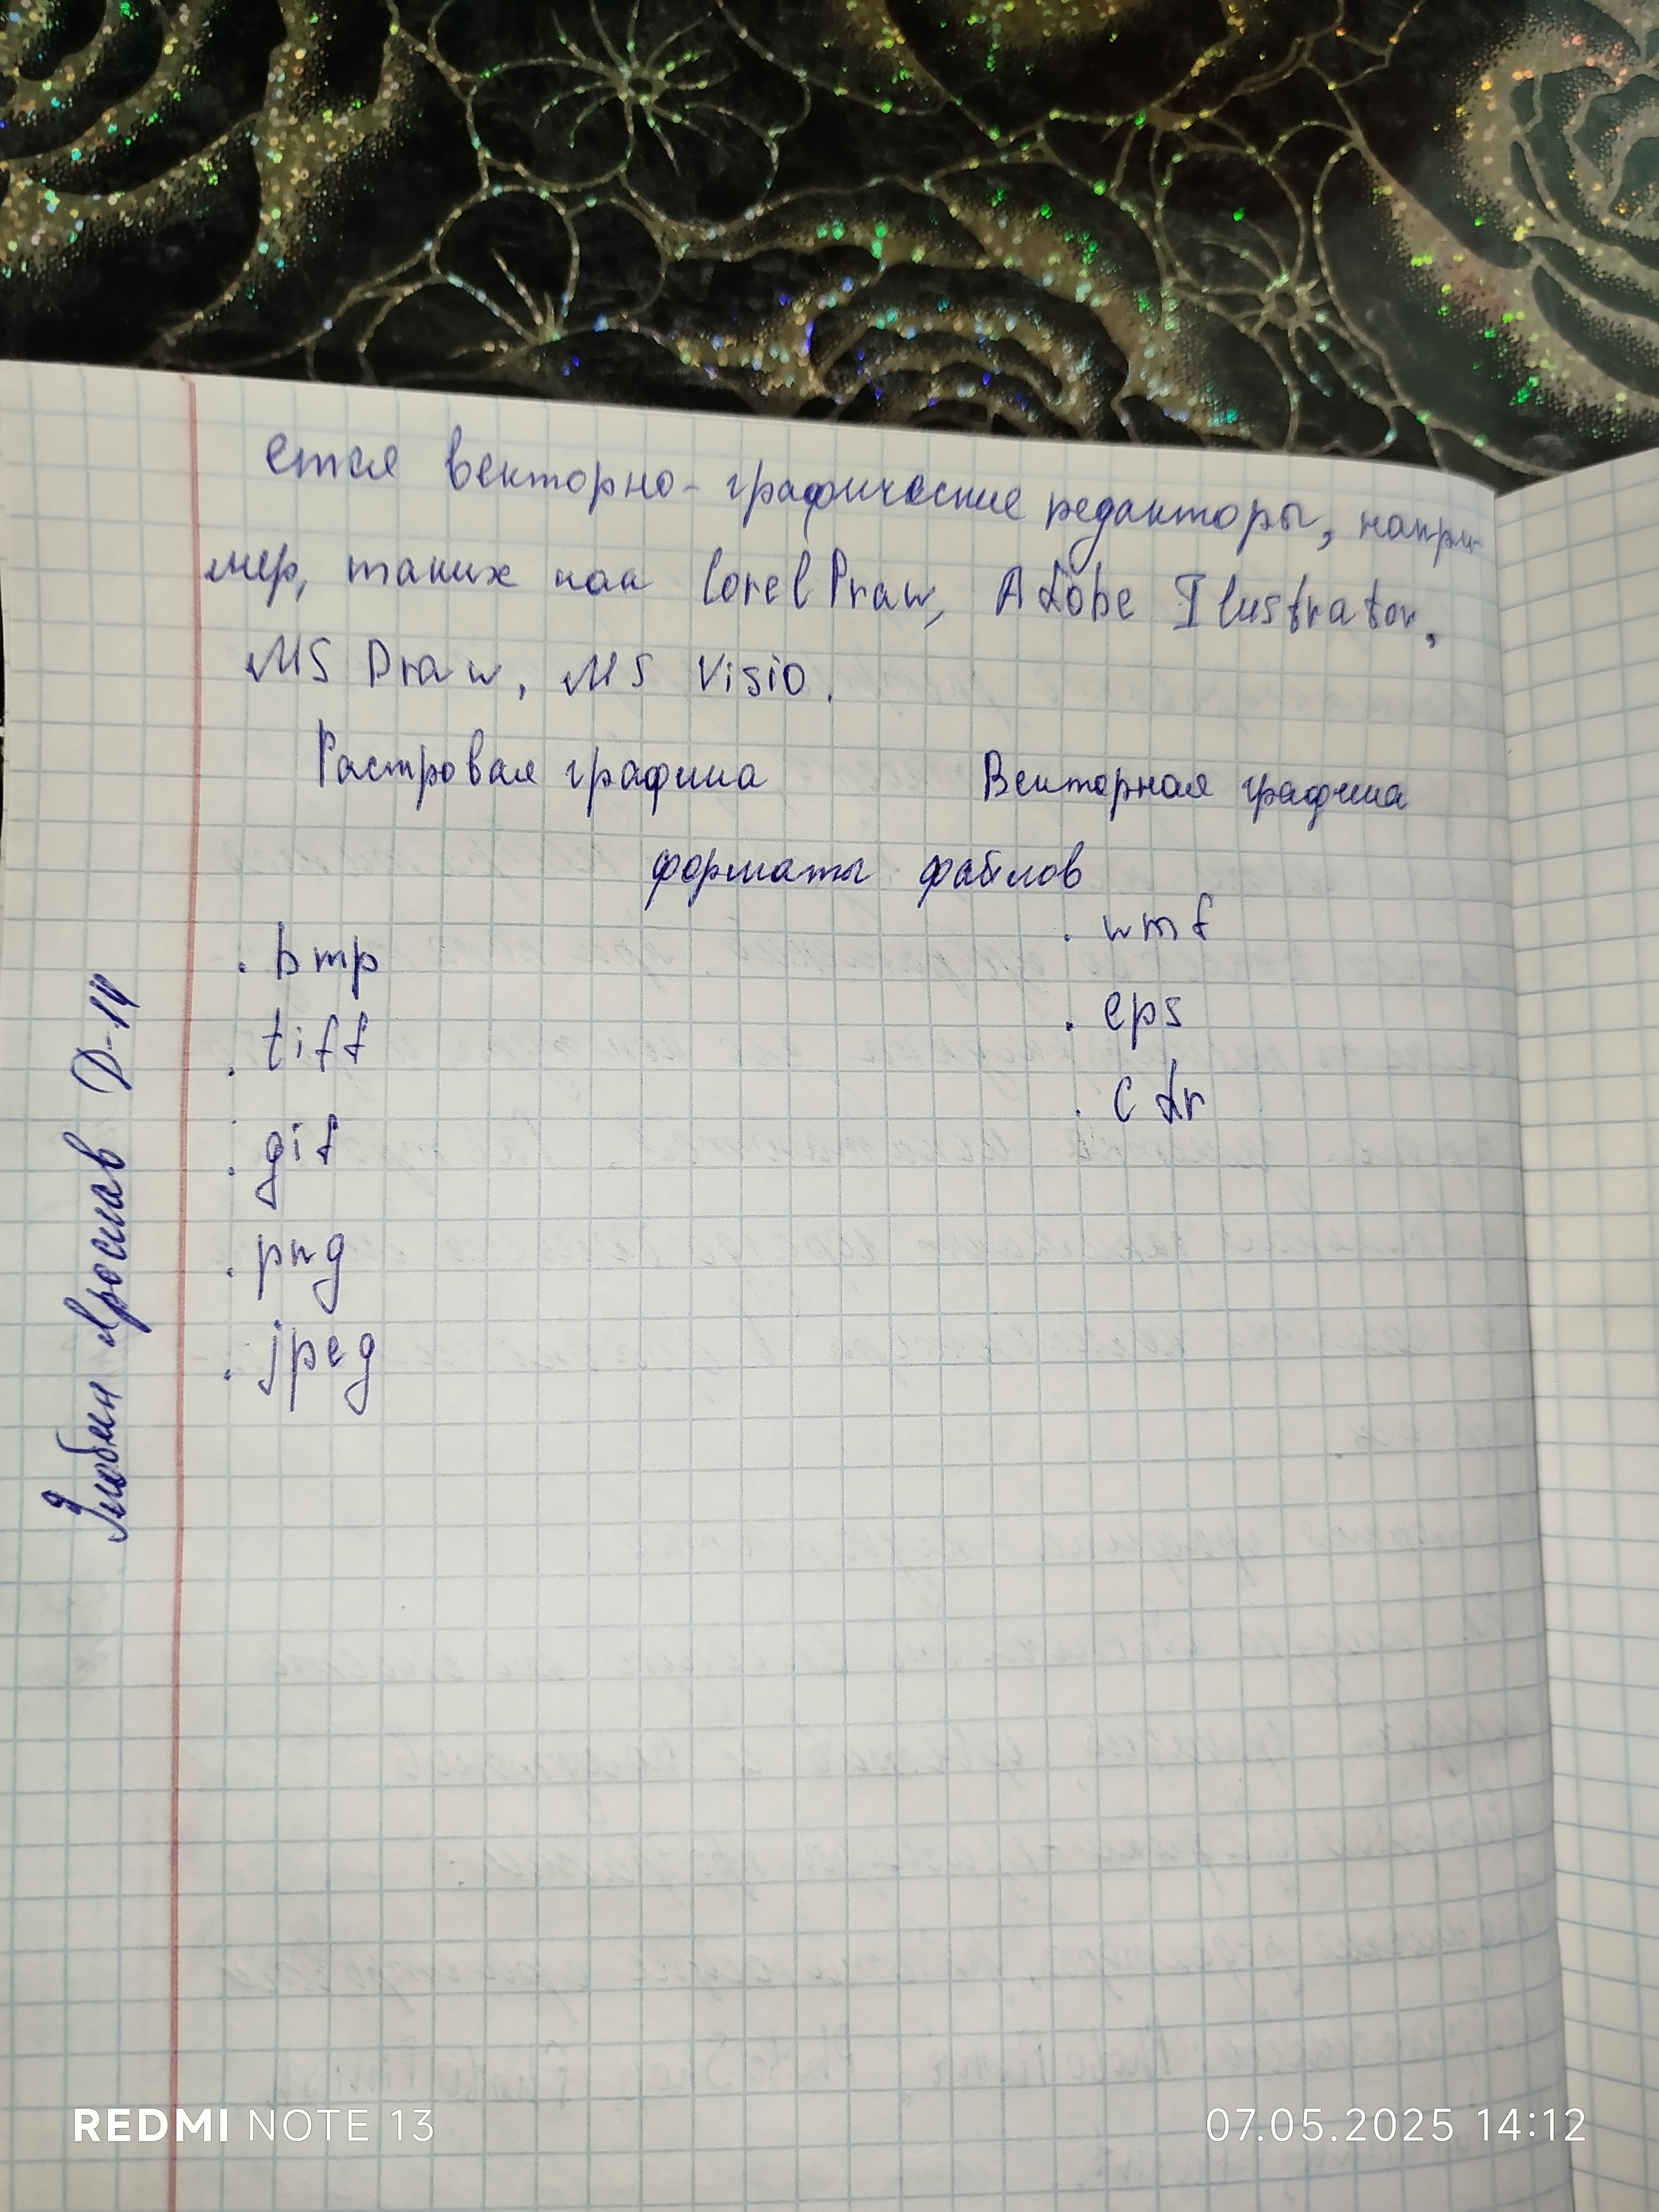 ется векторно-графические редакторы, напри
мер, таких как Corel Draw, Adobe Ilustrator,
MS Draw, MS Visio.
Растровая графика Векторная графика
форматы файлов
. bmp . wmf
. tiff . eps
. gif . cdr
. png
. jpeg
Злобин Ярослав Д-14
REDMI NOTE 13 07.05.2025 14:12